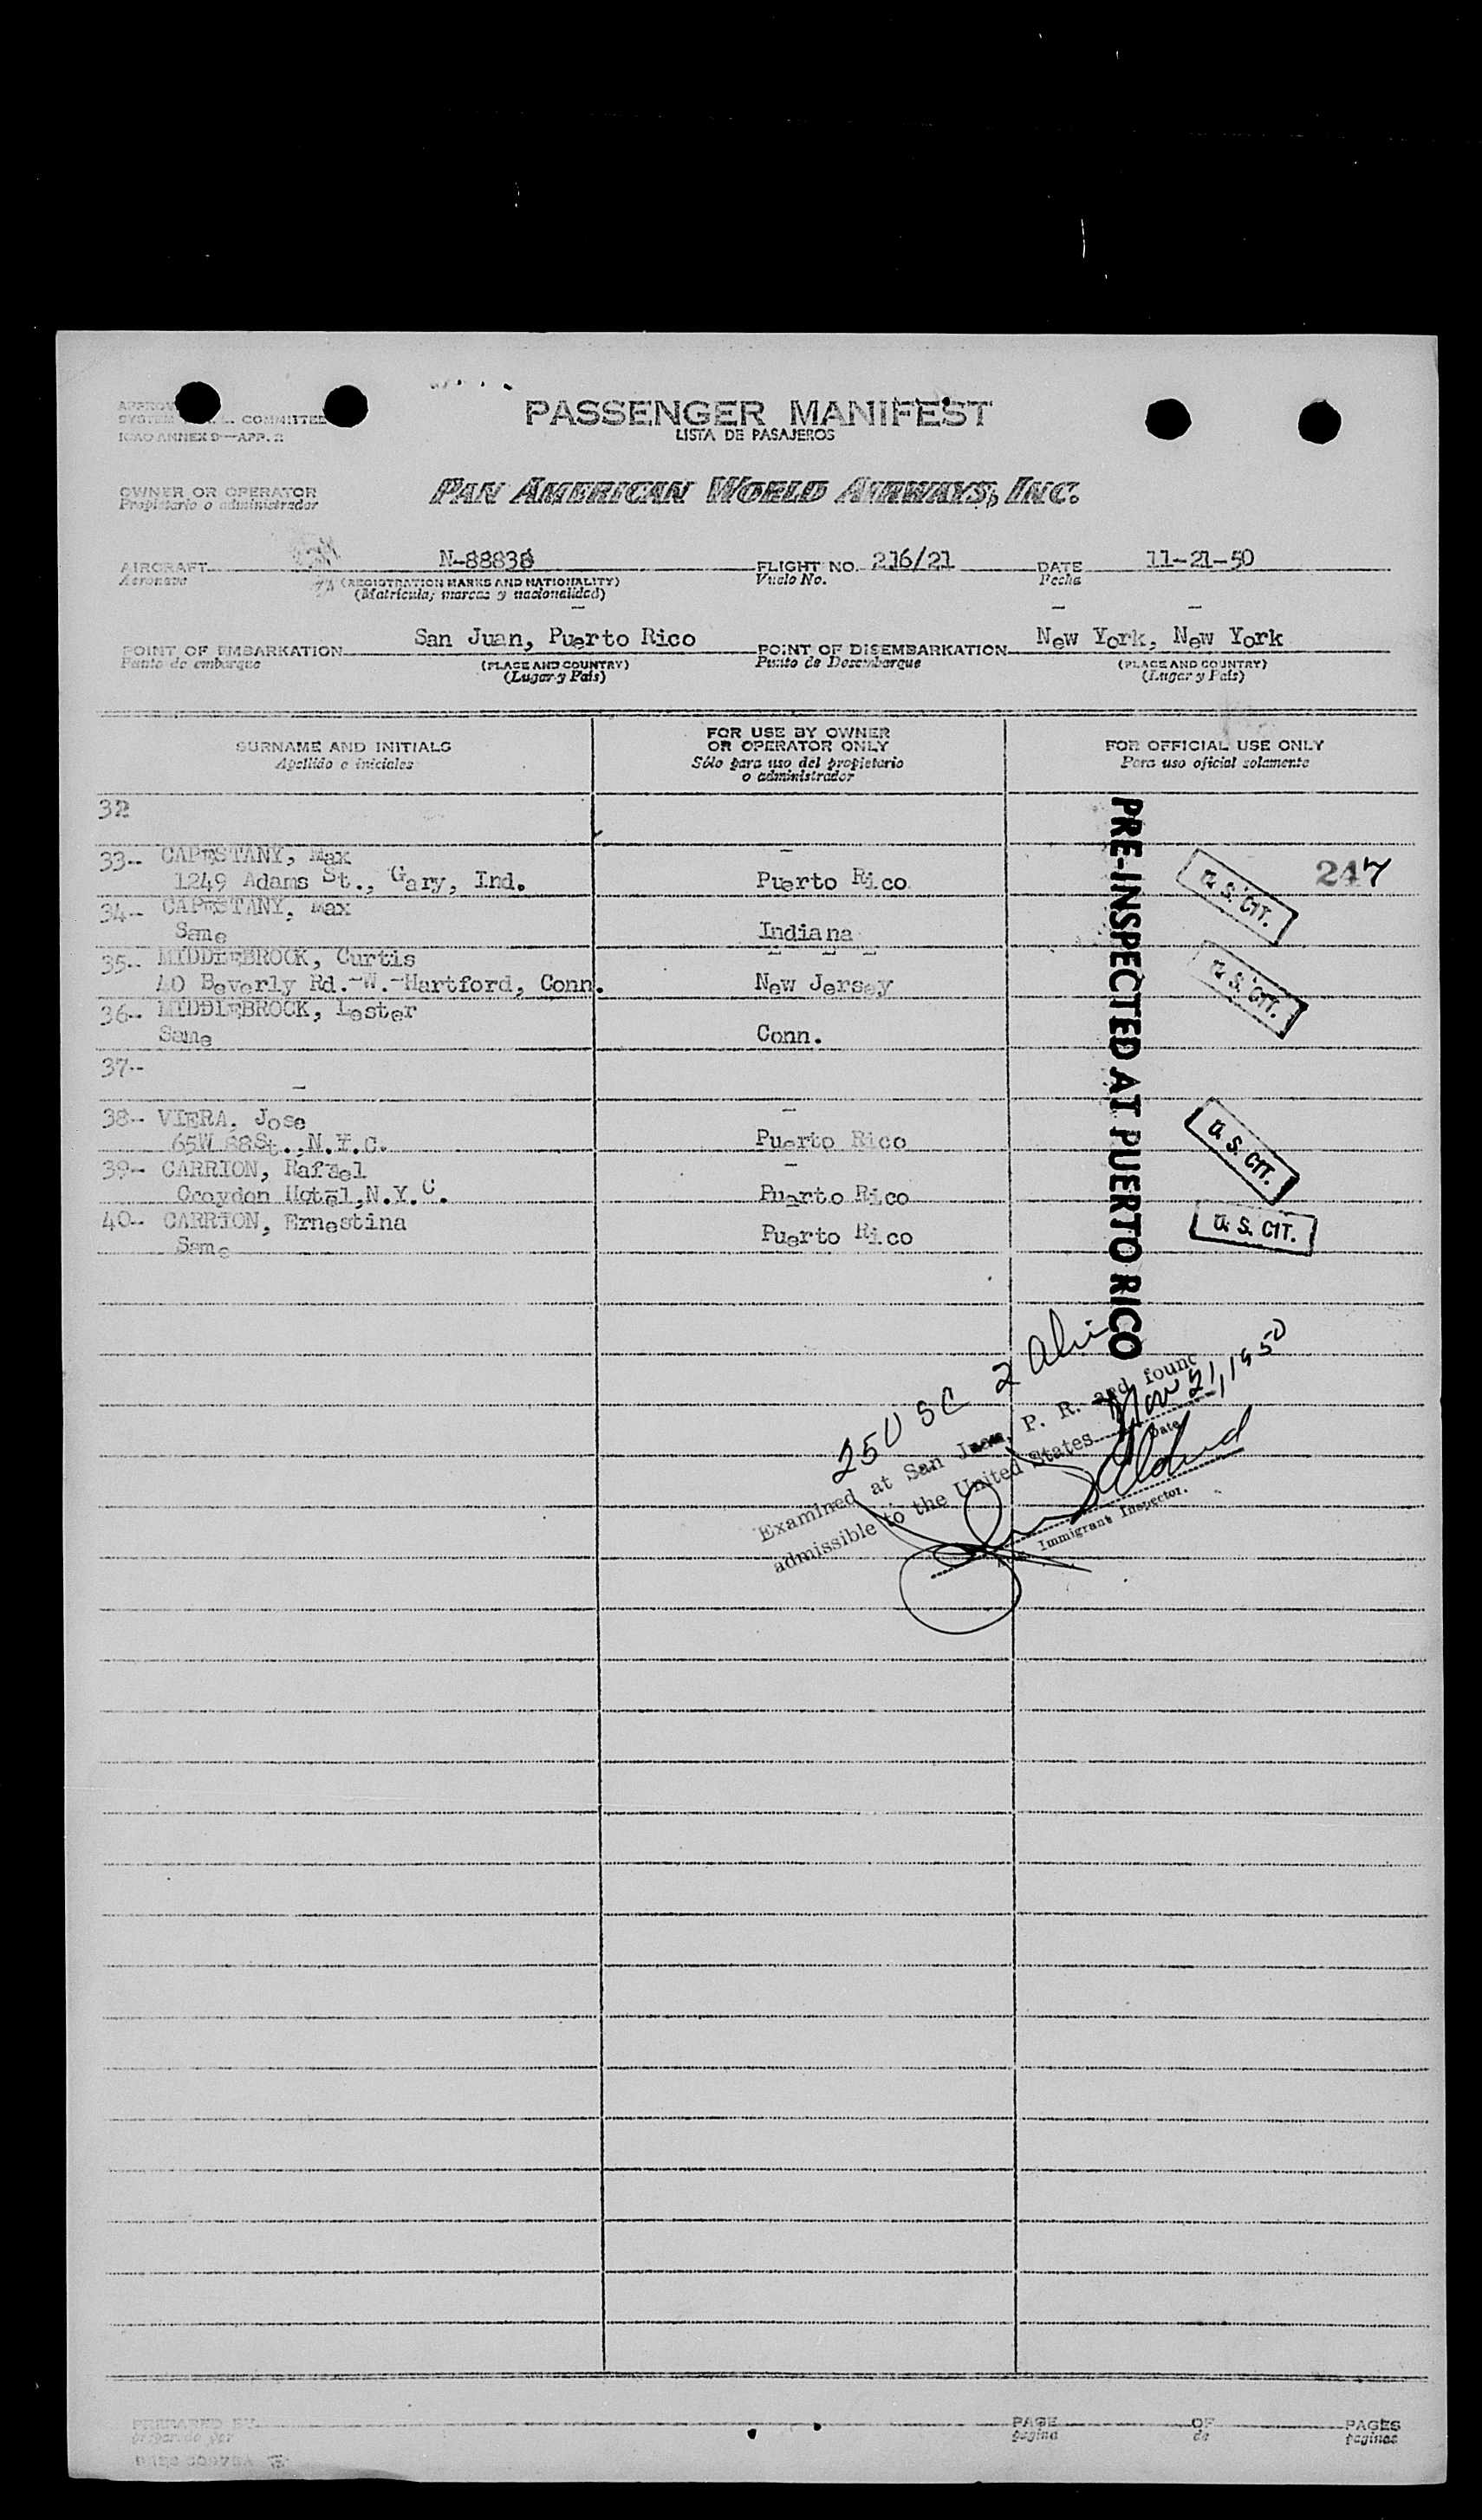 PASSENGER MANIFEST
LISTA DE PASAJEROS
COMMITTEE
ICAO ANNEX 9—APP. 2
OWNER OR OPERATOR
Propietario o administrador
PAN AMERICAN WORLD AIRWAYS, INC.
AIRCRAFT N-88838 FLIGHT NO. 216/21 DATE 11-21-50
Aeronave (REGISTRATION MARKS AND NATIONALITY) Vuelo No. Fecha
(Matricula; marcas y nacionalidad)
POINT OF EMBARKATION San Juan, Puerto Rico POINT OF DISEMBARKATION New York, New York
Punto de embarque (PLACE AND COUNTRY) Punto de Desembarque (PLACE AND COUNTRY)
(Lugar y País) (Lugar y País)
SURNAME AND INITIALS
Apellido e iniciales
FOR USE BY OWNER
OR OPERATOR ONLY
Sólo para uso del propietario
o administrador
FOR OFFICIAL USE ONLY
Para uso oficial solamente
32
33-- CAPESTANY, Max
1249 Adams St., Gary, Ind. Puerto Rico U. S. CIT. 247
34-- CAPESTANY, Max
Same Indiana
35-- MIDDLEBROCK, Curtis
40 Beverly Rd.-W.-Hartford, Conn. New Jersey U. S. CIT.
36-- MIDDLEBROCK, Lester
Same Conn.
37--
38-- VIERA, Jose
65W 88St.,N.Y.C. Puerto Rico U. S. CIT.
39-- CARRION, Rafael
Croydon Hotel,N.Y.C. Puerto Rico
40-- CARRION, Ernestina Puerto Rico U. S. CIT.
Same
PRE-INSPECTED AT PUERTO RICO
25 USC 2 Ali
Examined at San Juan, P. R. and found
admissible to the United States Nov 21, 1950
Date
Immigrant Inspector.
PREPARED BY PAGE OF PAGES
preparado por página de páginas